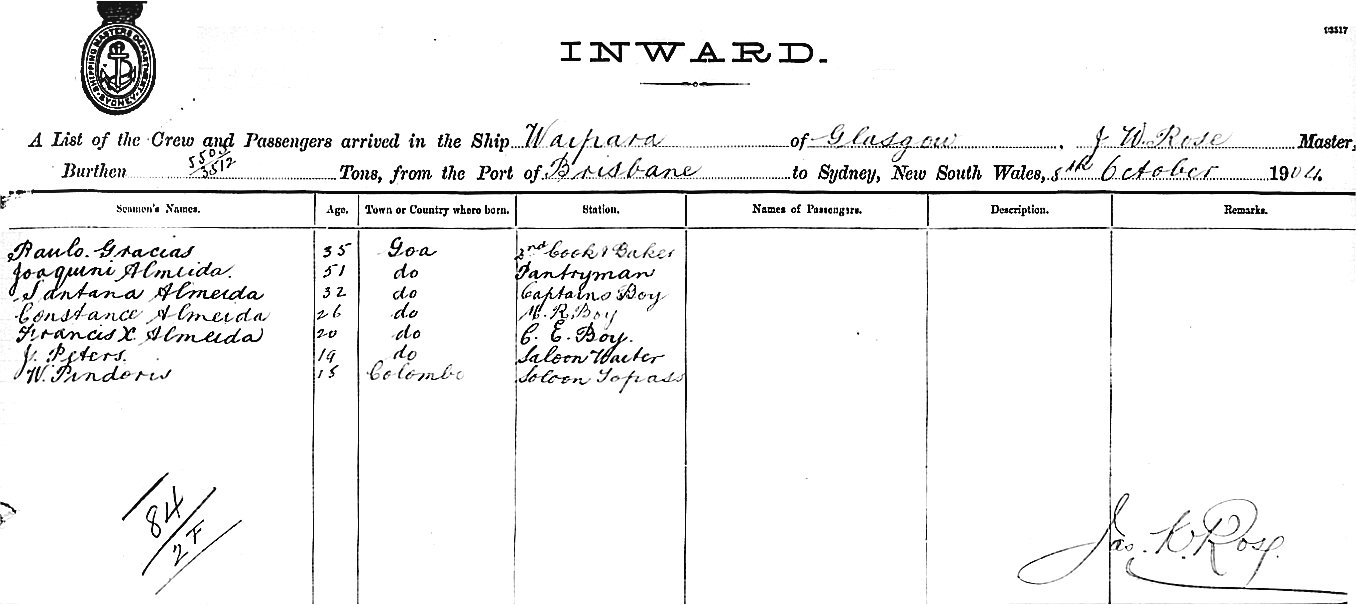 SHIPPING MASTERS DEPARTMENT
SYDNEY
INWARD.
A List of the Crew and Passengers arrived in the Ship Waipara of Glasgow, J W. Rose Master,
Burthen 5505/3512 Tons, from the Port of Brisbane to Sydney, New South Wales, 8th October 1904.
Seamen's Names. Age. Town or Country where born. Station. Names of Passengers. Description. Remarks.
Paulo. Gracias 35 Goa 2nd Cook & Baker
Joaquini Almeida. 51 do Pantryman
Santana Almeida 32 do Captains Boy
Constance Almeida 26 do M. R. Boy
Francis X. Almeida 20 do C. E. Boy.
J. Peters. 19 do Saloon Waiter
W. Pindoris 15 Colombo Saloon Topass
84
2F
Jas. W. Rose.